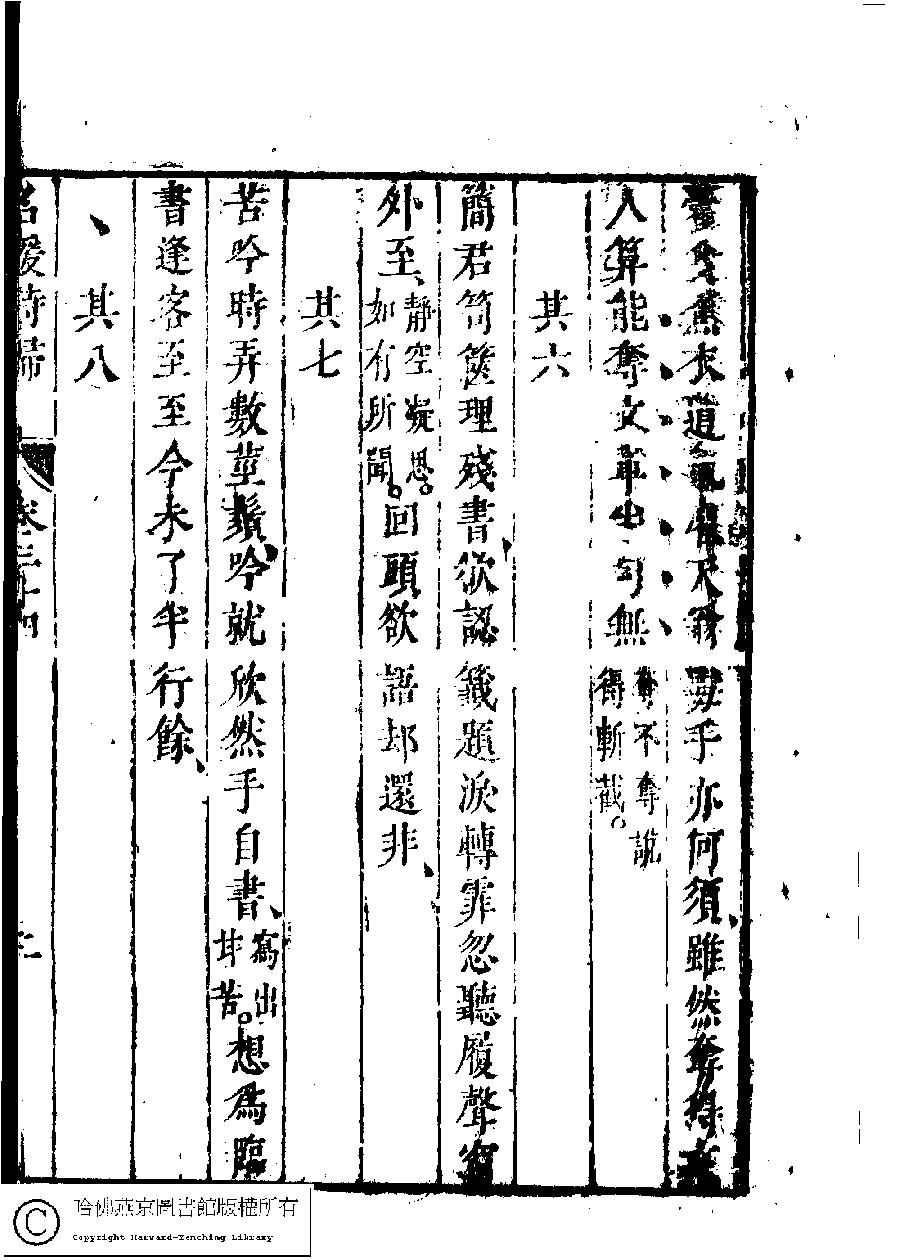 衣道 手亦何須雖然奪
人算能奪文章 句無奪不奪說得斬截。
其六
簡君笥篋理殘書欲認籤題淚轉霏忽聽履聲窗
外至靜空凝思。如有所聞。回頭欲語却還非
其七
苦吟時弄數莖鬚吟就欣然手自書寫出甘苦。想爲臨
書逢客至至今未了半行餘
其八
名媛詩歸
卷三十四
哈佛燕京圖書館版權所有
Copyright Harvard-Yenching Library